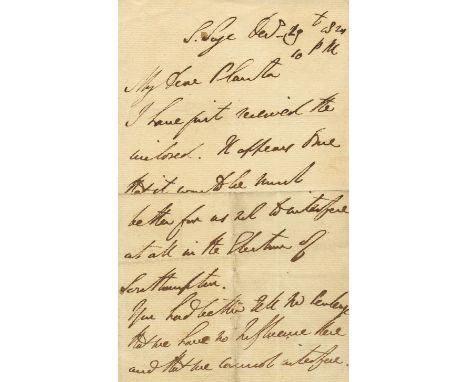 S. Saye Decr. 29th 1824
10 P M
My Dear Planta
I have just received the
inclosed. It appears to me
that it would be much
better for us not to interfere
at all in the Election of
Southampton.
You had better tell Mr
that we have no Influence there
and that we cannot interfere.